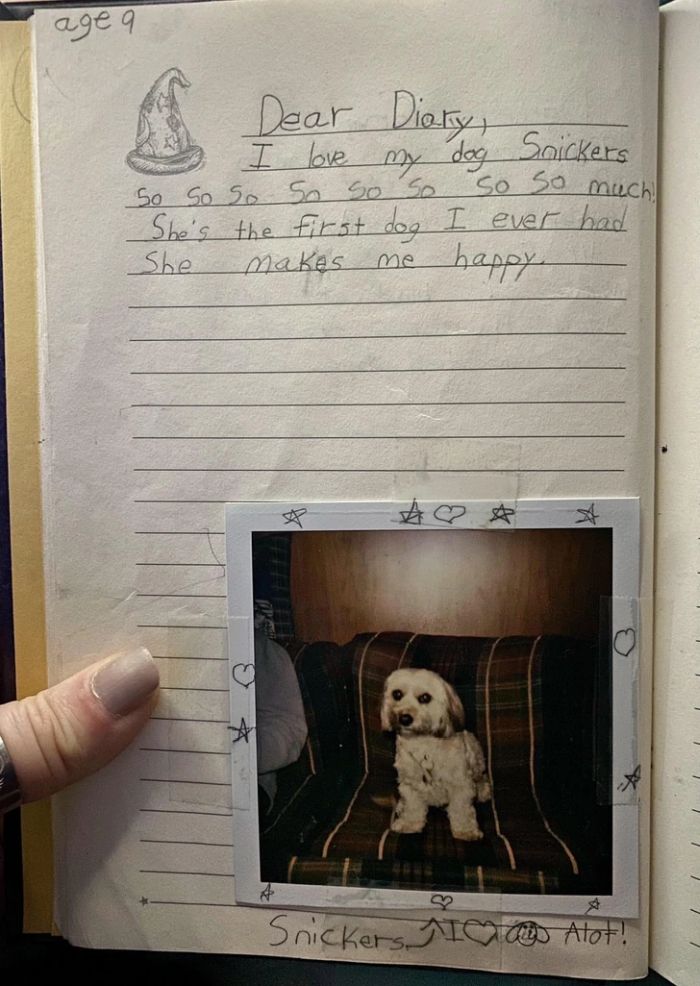 age 9
Dear Diary,
I love my dog Snickers
So So So So So So So So much!
She's the first dog I ever had
She makes me happy.
Snickers I Alot!